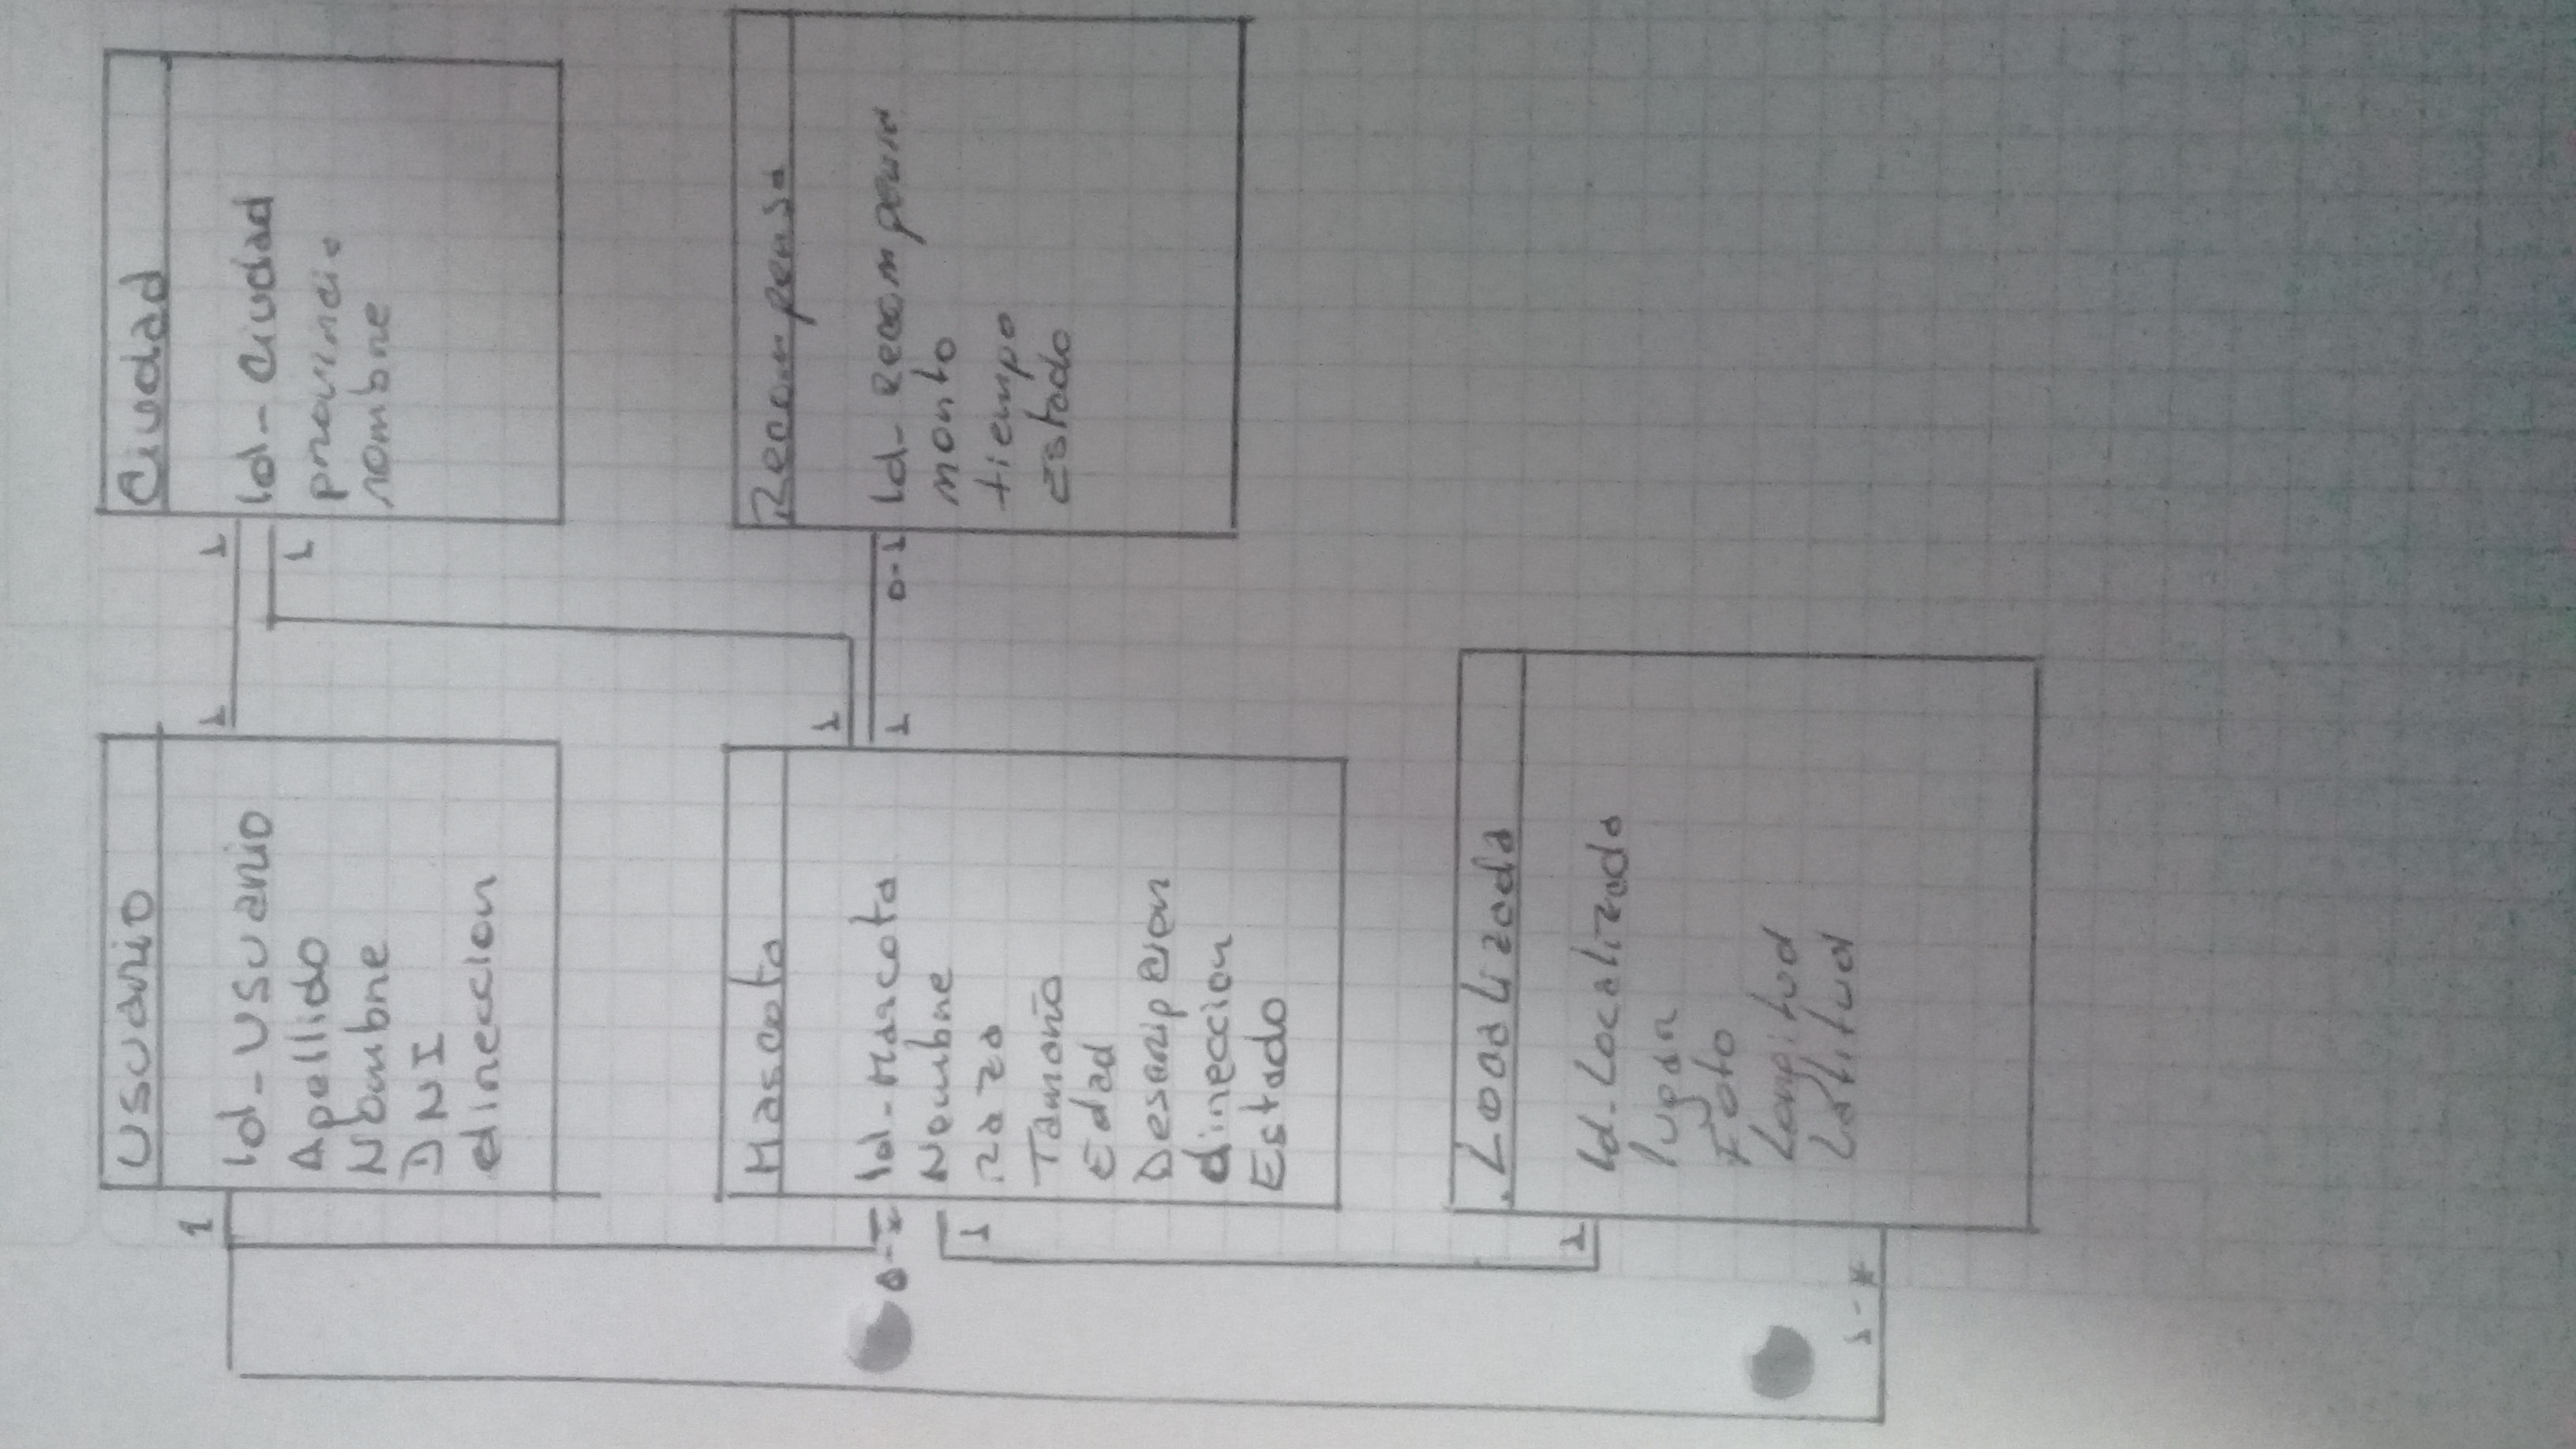 Usuario
1
Id-Usuario
Apellido
Nombre
DNI
direccion
1
1
Ciudad
Id-Ciudad
provincia
nombre
1
Mascota
Id-Mascota
Nombre
raza
Tamaño
Edad
Descripcion
direccion
Estado
0-*
1
1
1
0-1
Recompensa
Id-Recompensa
monto
tiempo
Estado
Localizada
1
Id-Localizada
lugar
Foto
Longitud
Latitud
1-*